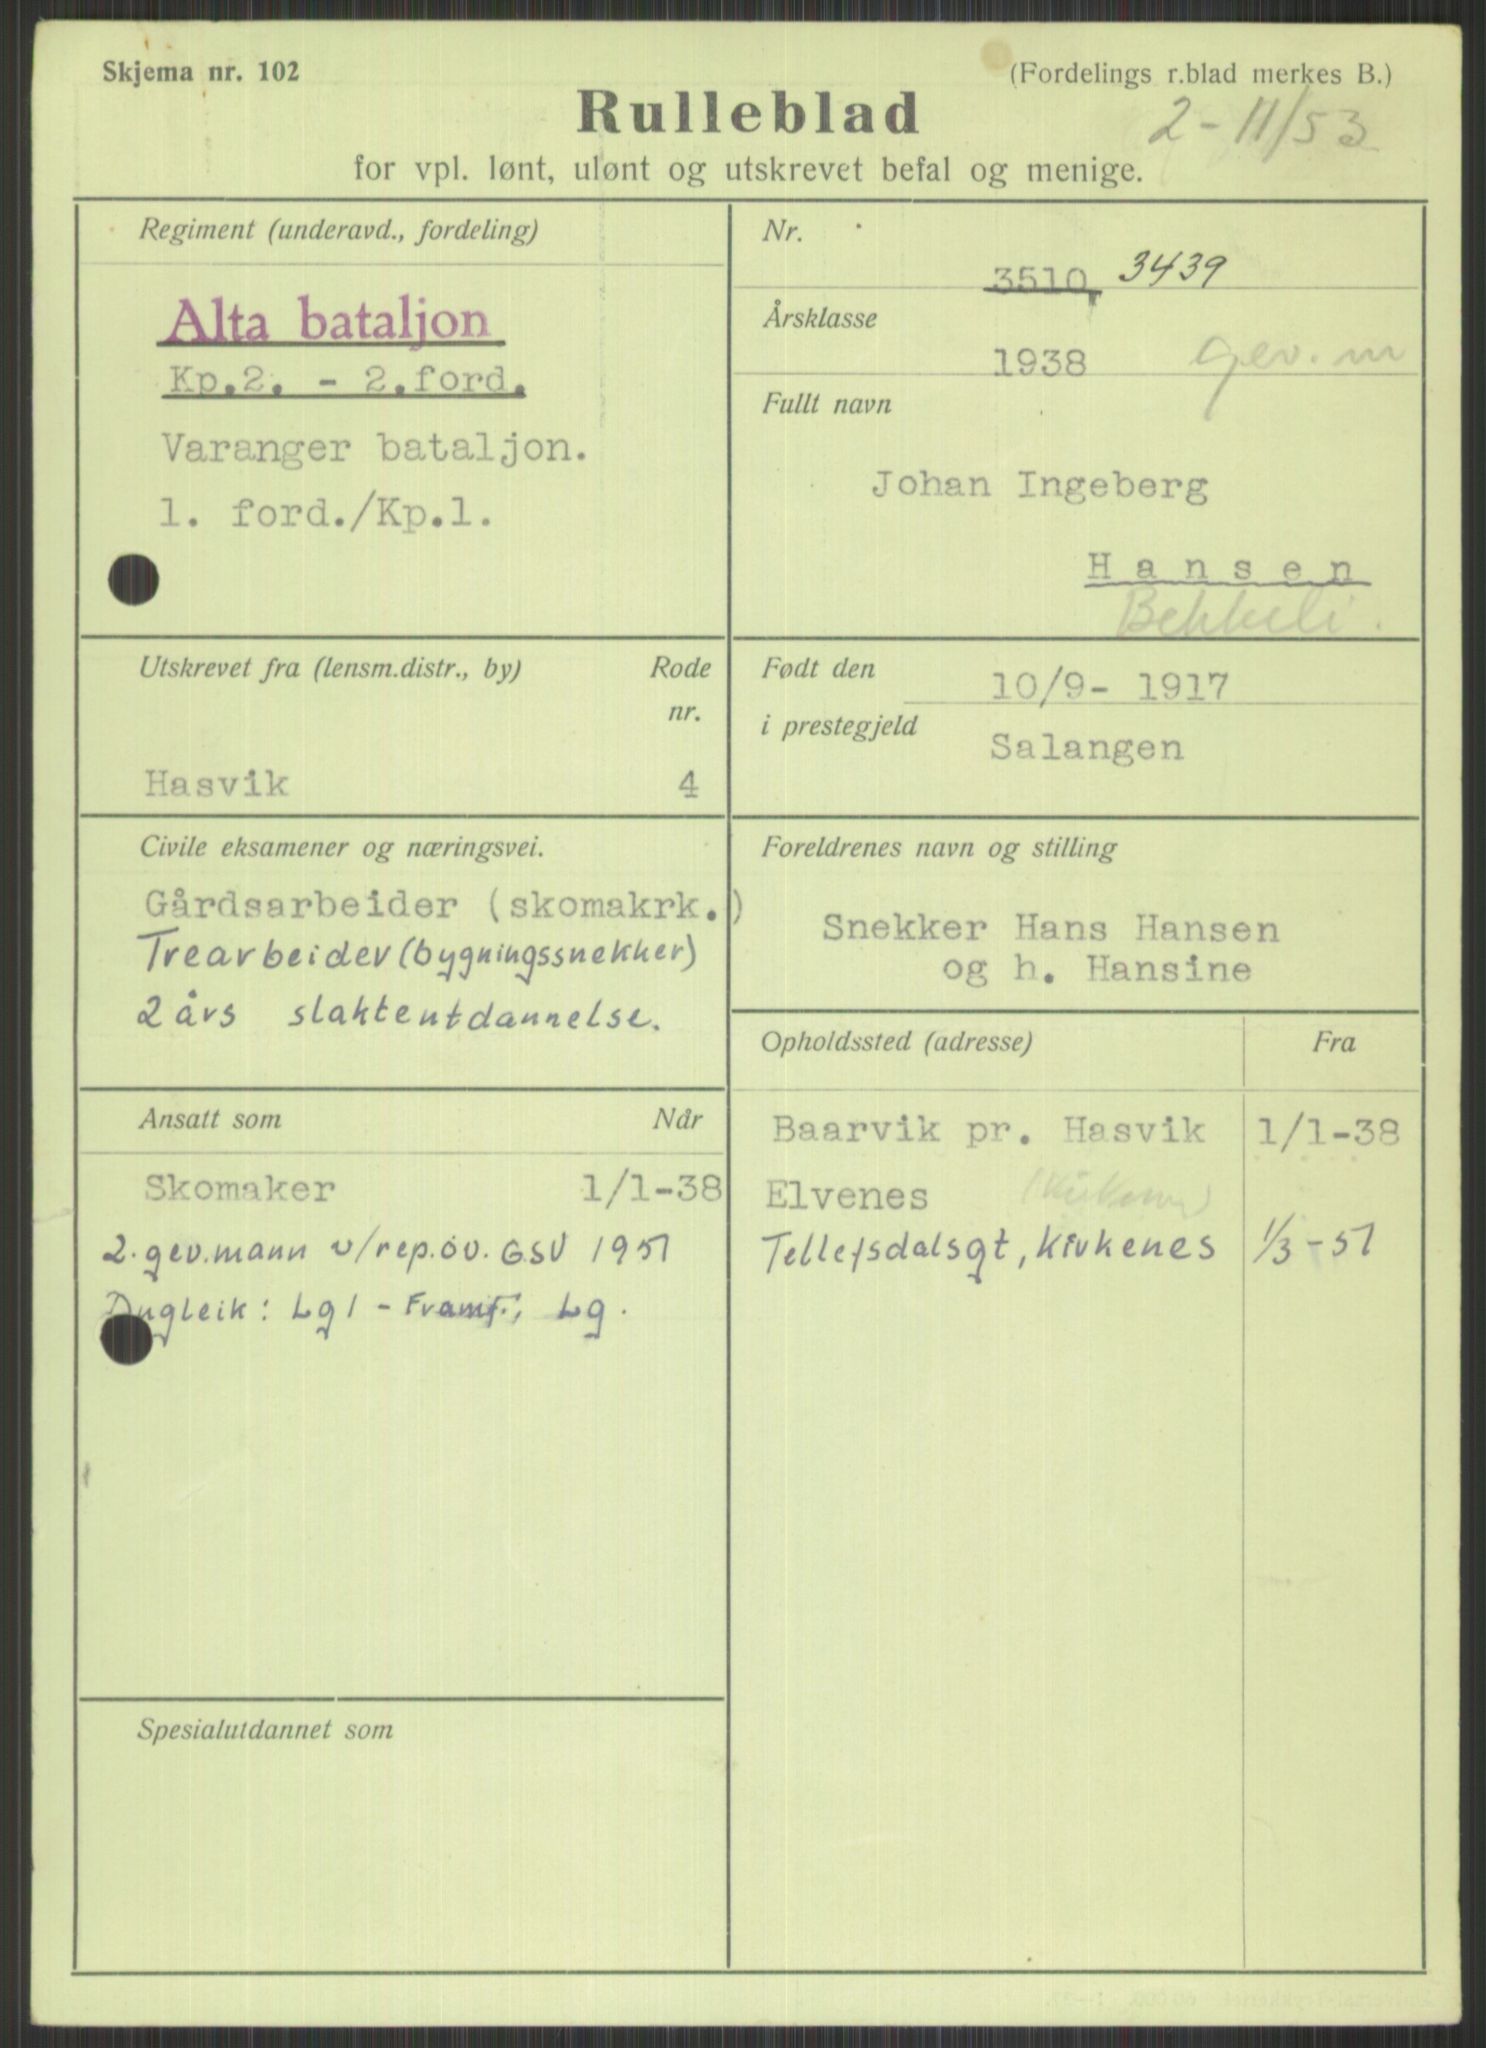 Skjema nr. 102
(Fordelings r.blad merkes B.)
2-11/53
Rulleblad
for vpl. lønt, ulønt og utskrevet befal og menige.
Regiment (underavd., fordeling)
Alta bataljon
Kp.2. - 2.ford.
Varanger bataljon.
1. ford./Kp.1.
Nr.
3510, 3439
Årsklasse
1938 gev. m
Fullt navn
Johan Ingeberg
Hansen
Bekkeli.
Utskrevet fra (lensm.distr., by) Rode
nr.
Hasvik 4
Født den 10/9- 1917
i prestegjeld Salangen
Civile eksamener og næringsvei.
Gårdsarbeider (skomakrk.)
Trearbeider (bygningssnekker)
2 års slakteutdannelse.
Foreldrenes navn og stilling
Snekker Hans Hansen
og h. Hansine
Ansatt som Når
Skomaker 1/1-38
2. gev.mann v/rep.øv. GSV 1951
Dugleik: Lg 1 - Framf., Lg.
Opholdssted (adresse) Fra
Baarvik pr. Hasvik 1/1-38
Elvenes (Kirkenes)
Tellefsdalsgt, Kirkenes 1/3-51
Spesialutdannet som